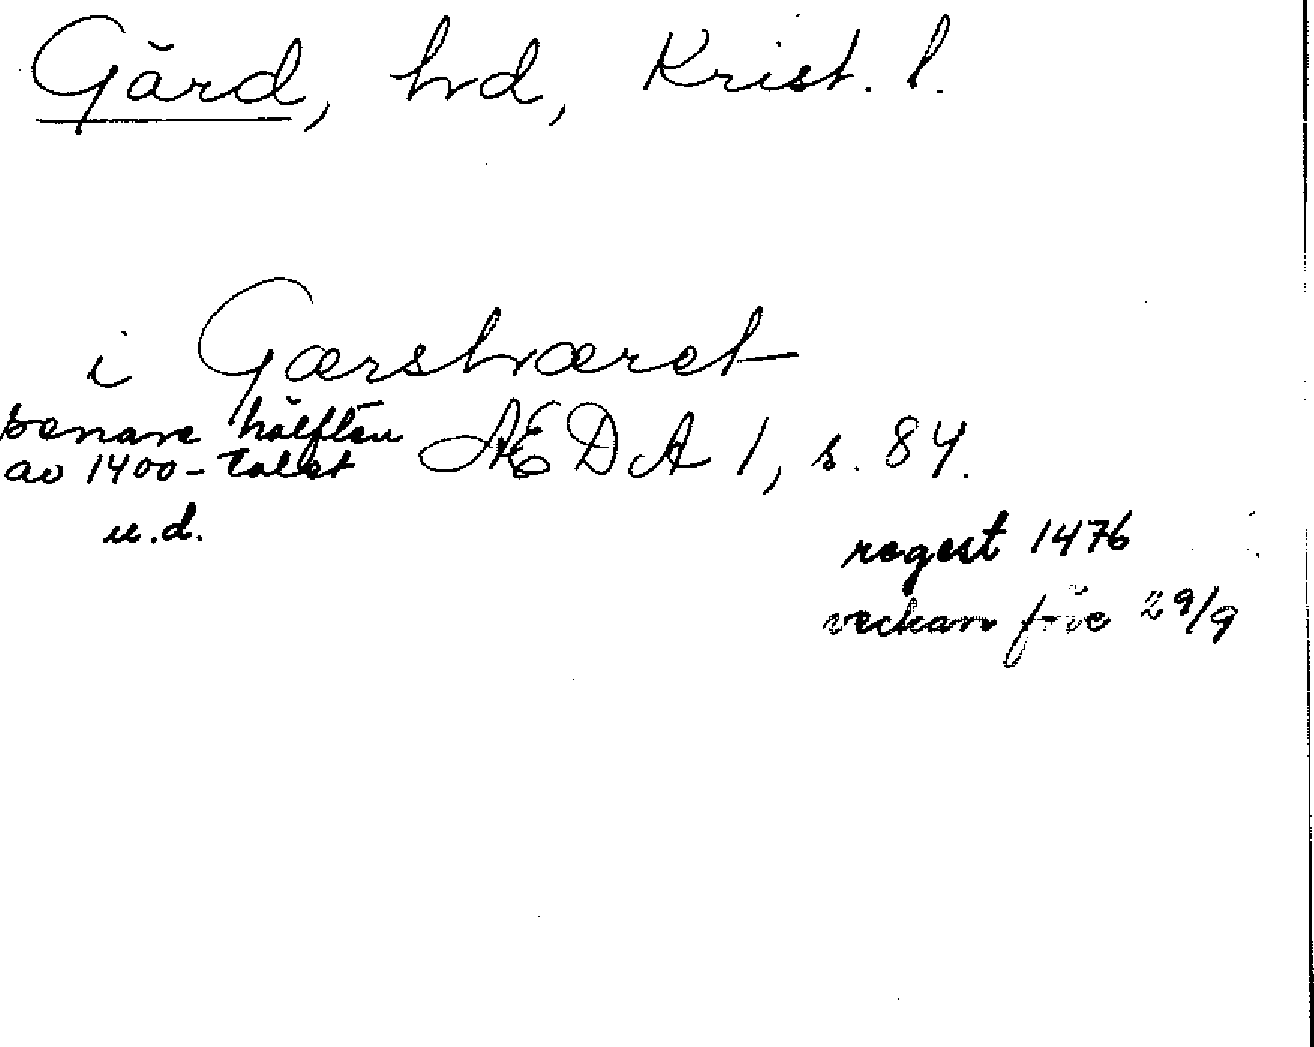 Gärd, hd, Krist. l.
i Gærshæret
senare hälften ÆDA 1, s. 84.
av 1400-talet
u.d.
regest 1476
veckan före 29/9